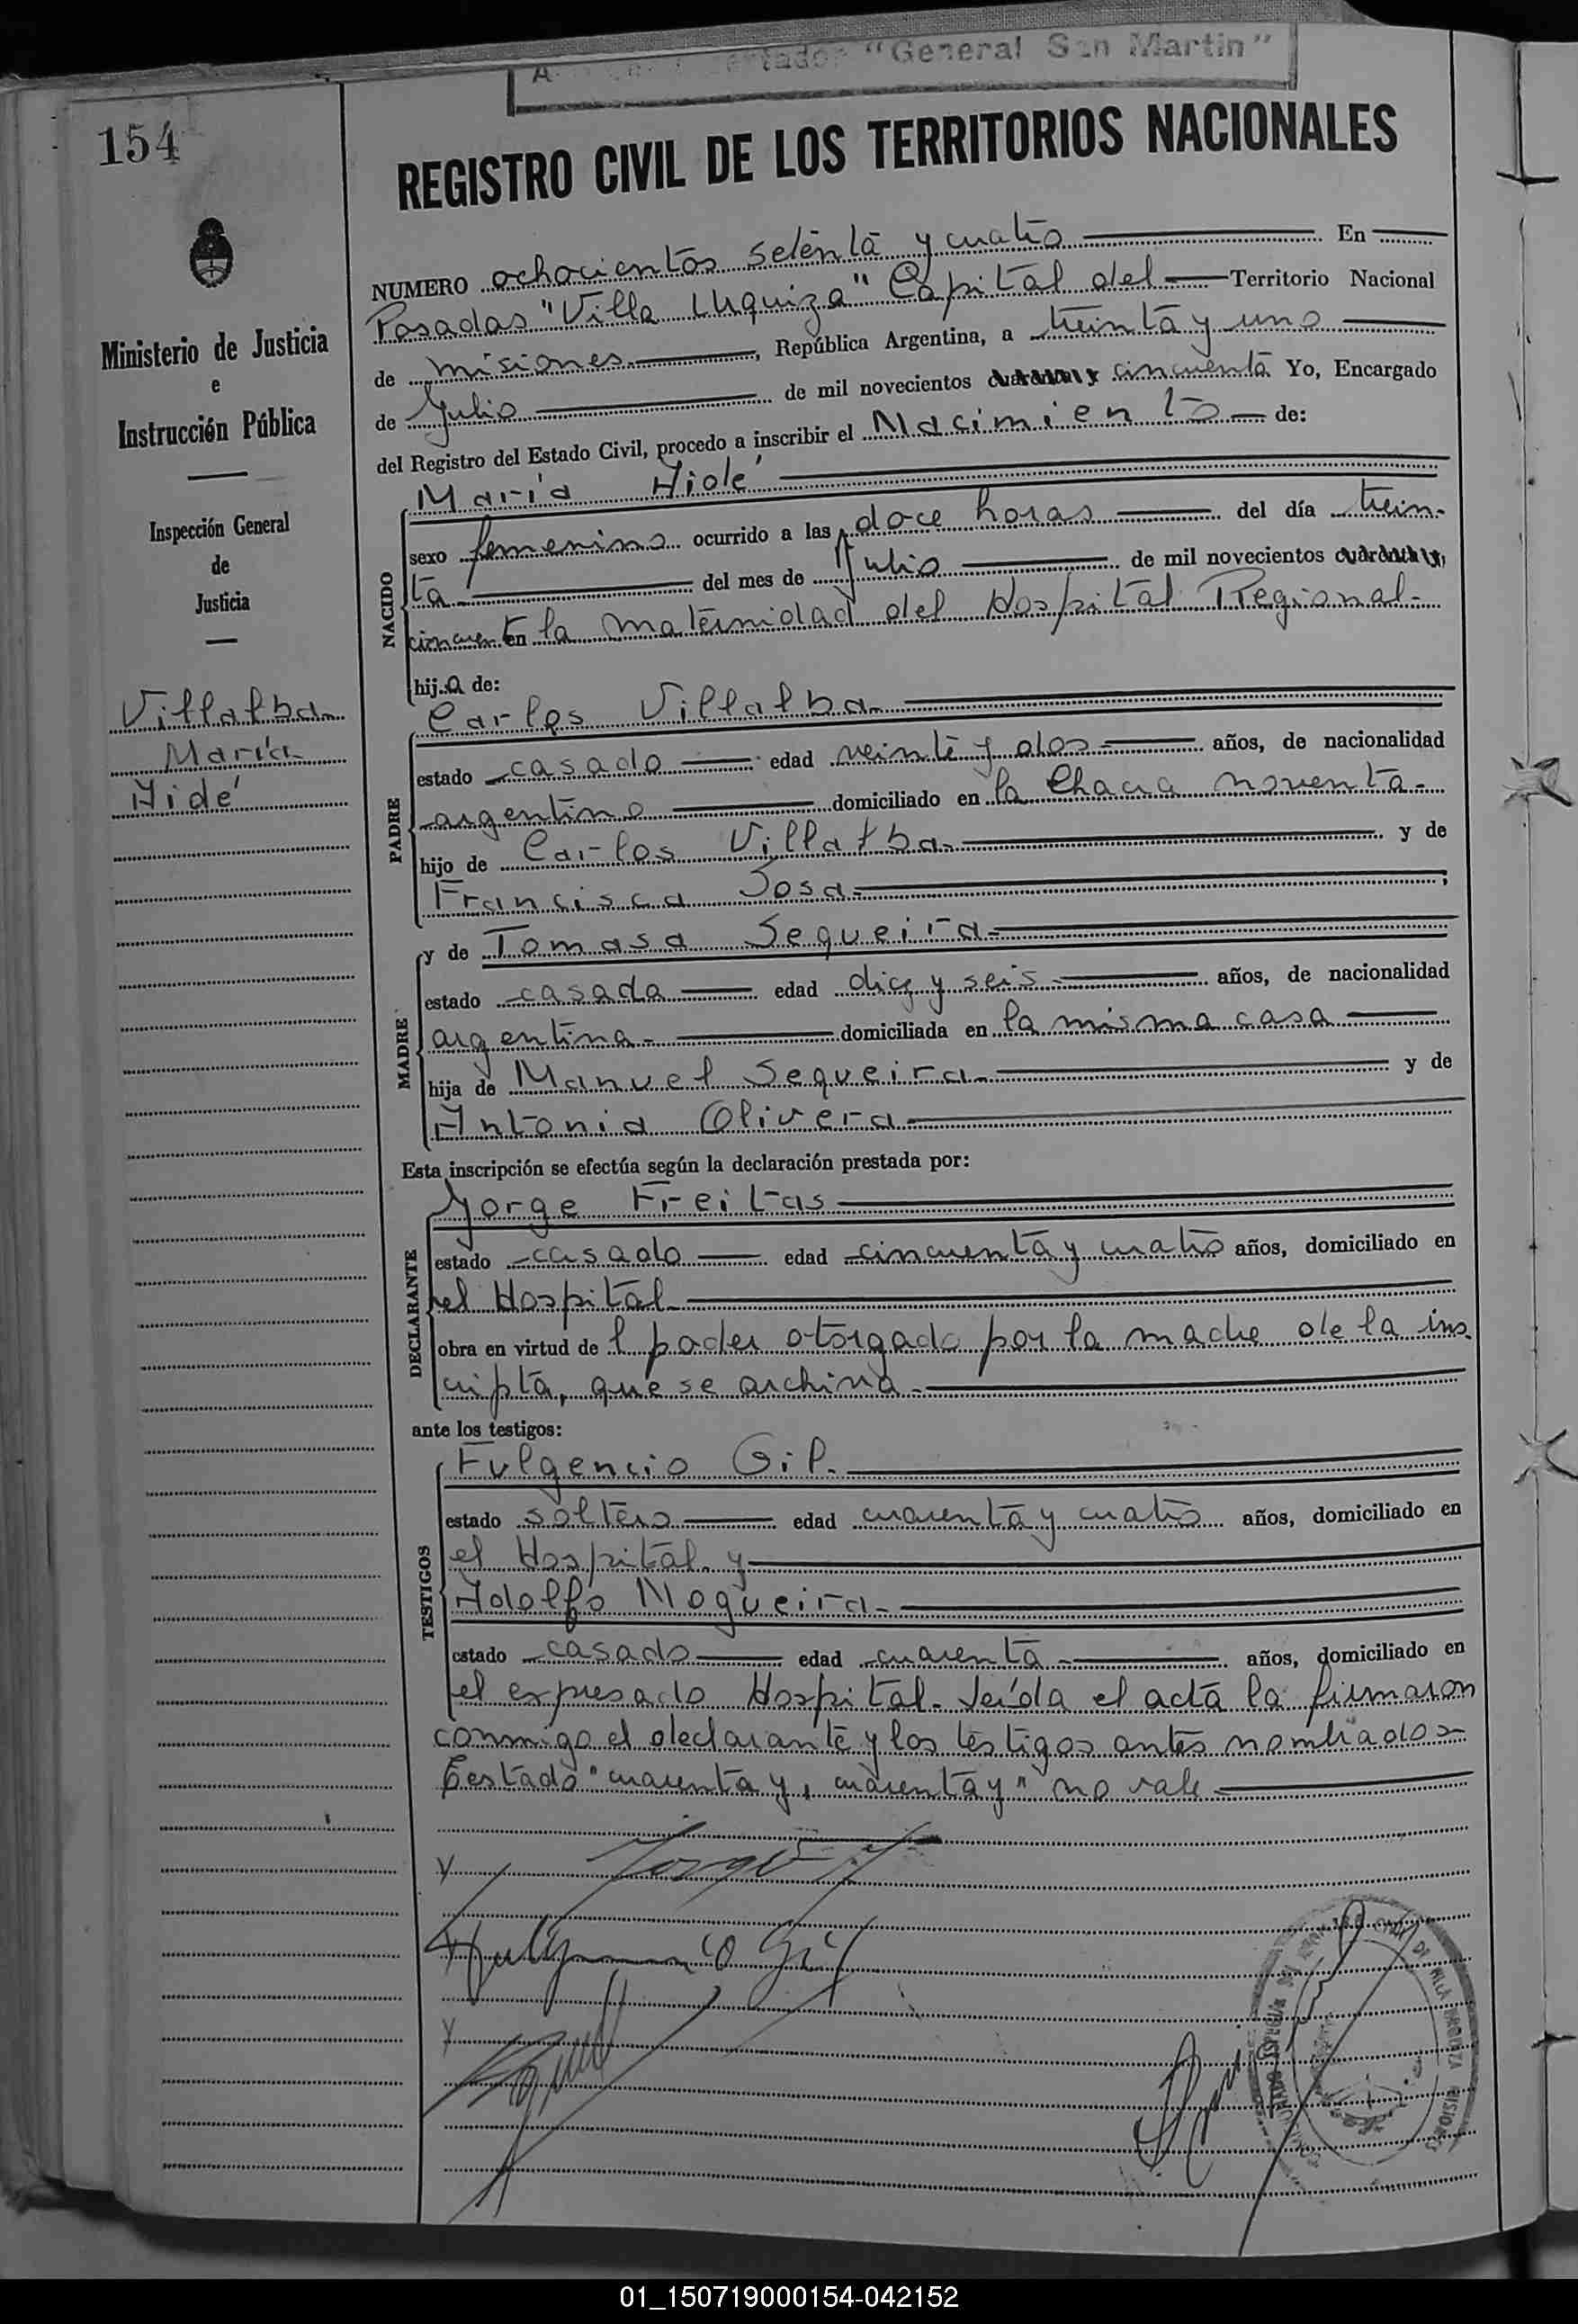 "General San Martin"
154
REGISTRO CIVIL DE LOS TERRITORIOS NACIONALES
Ministerio de Justicia
e
Instrucción Pública
Inspección General
de
Justicia
Villalba
María
Aidé
NUMERO ochocientos setenta y cuatro En
Posadas "Villa Urquiza" Capital del Territorio Nacional
de misiones, República Argentina, a treinta y uno
de Julio de mil novecientos cuarenta y cincuenta Yo, Encargado
del Registro del Estado Civil, procedo a inscribir el Nacimiento de:
NACIDO
María Aidé
sexo femenino ocurrido a las doce horas del día trein-
ta del mes de Julio de mil novecientos cuarenta y
cincuen en la maternidad del Hospital Regional-
hija de:
PADRE
Carlos Villalba
estado casado edad veinte y dos años, de nacionalidad
argentino domiciliado en la Chacra noventa-
hijo de Carlos Villalba y de
Francisca Sosa ;
MADRE
y de Tomasa Sequeira
estado casada edad diez y seis años, de nacionalidad
argentina domiciliada en la misma casa
hija de Manuel Sequeira y de
Antonia Olivera
Esta inscripción se efectúa según la declaración prestada por:
DECLARANTE
Jorge Freitas
estado casado edad cincuenta y cuatro años, domiciliado en
el Hospital
obra en virtud de l poder otorgado por la madre de la ins-
cripta, que se archiva
ante los testigos:
TESTIGOS
Fulgencio Gil.
estado soltero edad cuarenta y cuatro años, domiciliado en
el Hospital y
Adolfo Nogueira
estado casado edad cuarenta años, domiciliado en
el expresado Hospital. Leída el acta la firmaron
conmigo el declarante y los testigos antes nombrados-
Testado "cuarenta y, cuarenta y" no vale
Jorge
Fulgencio Gil
01_150719000154-042152